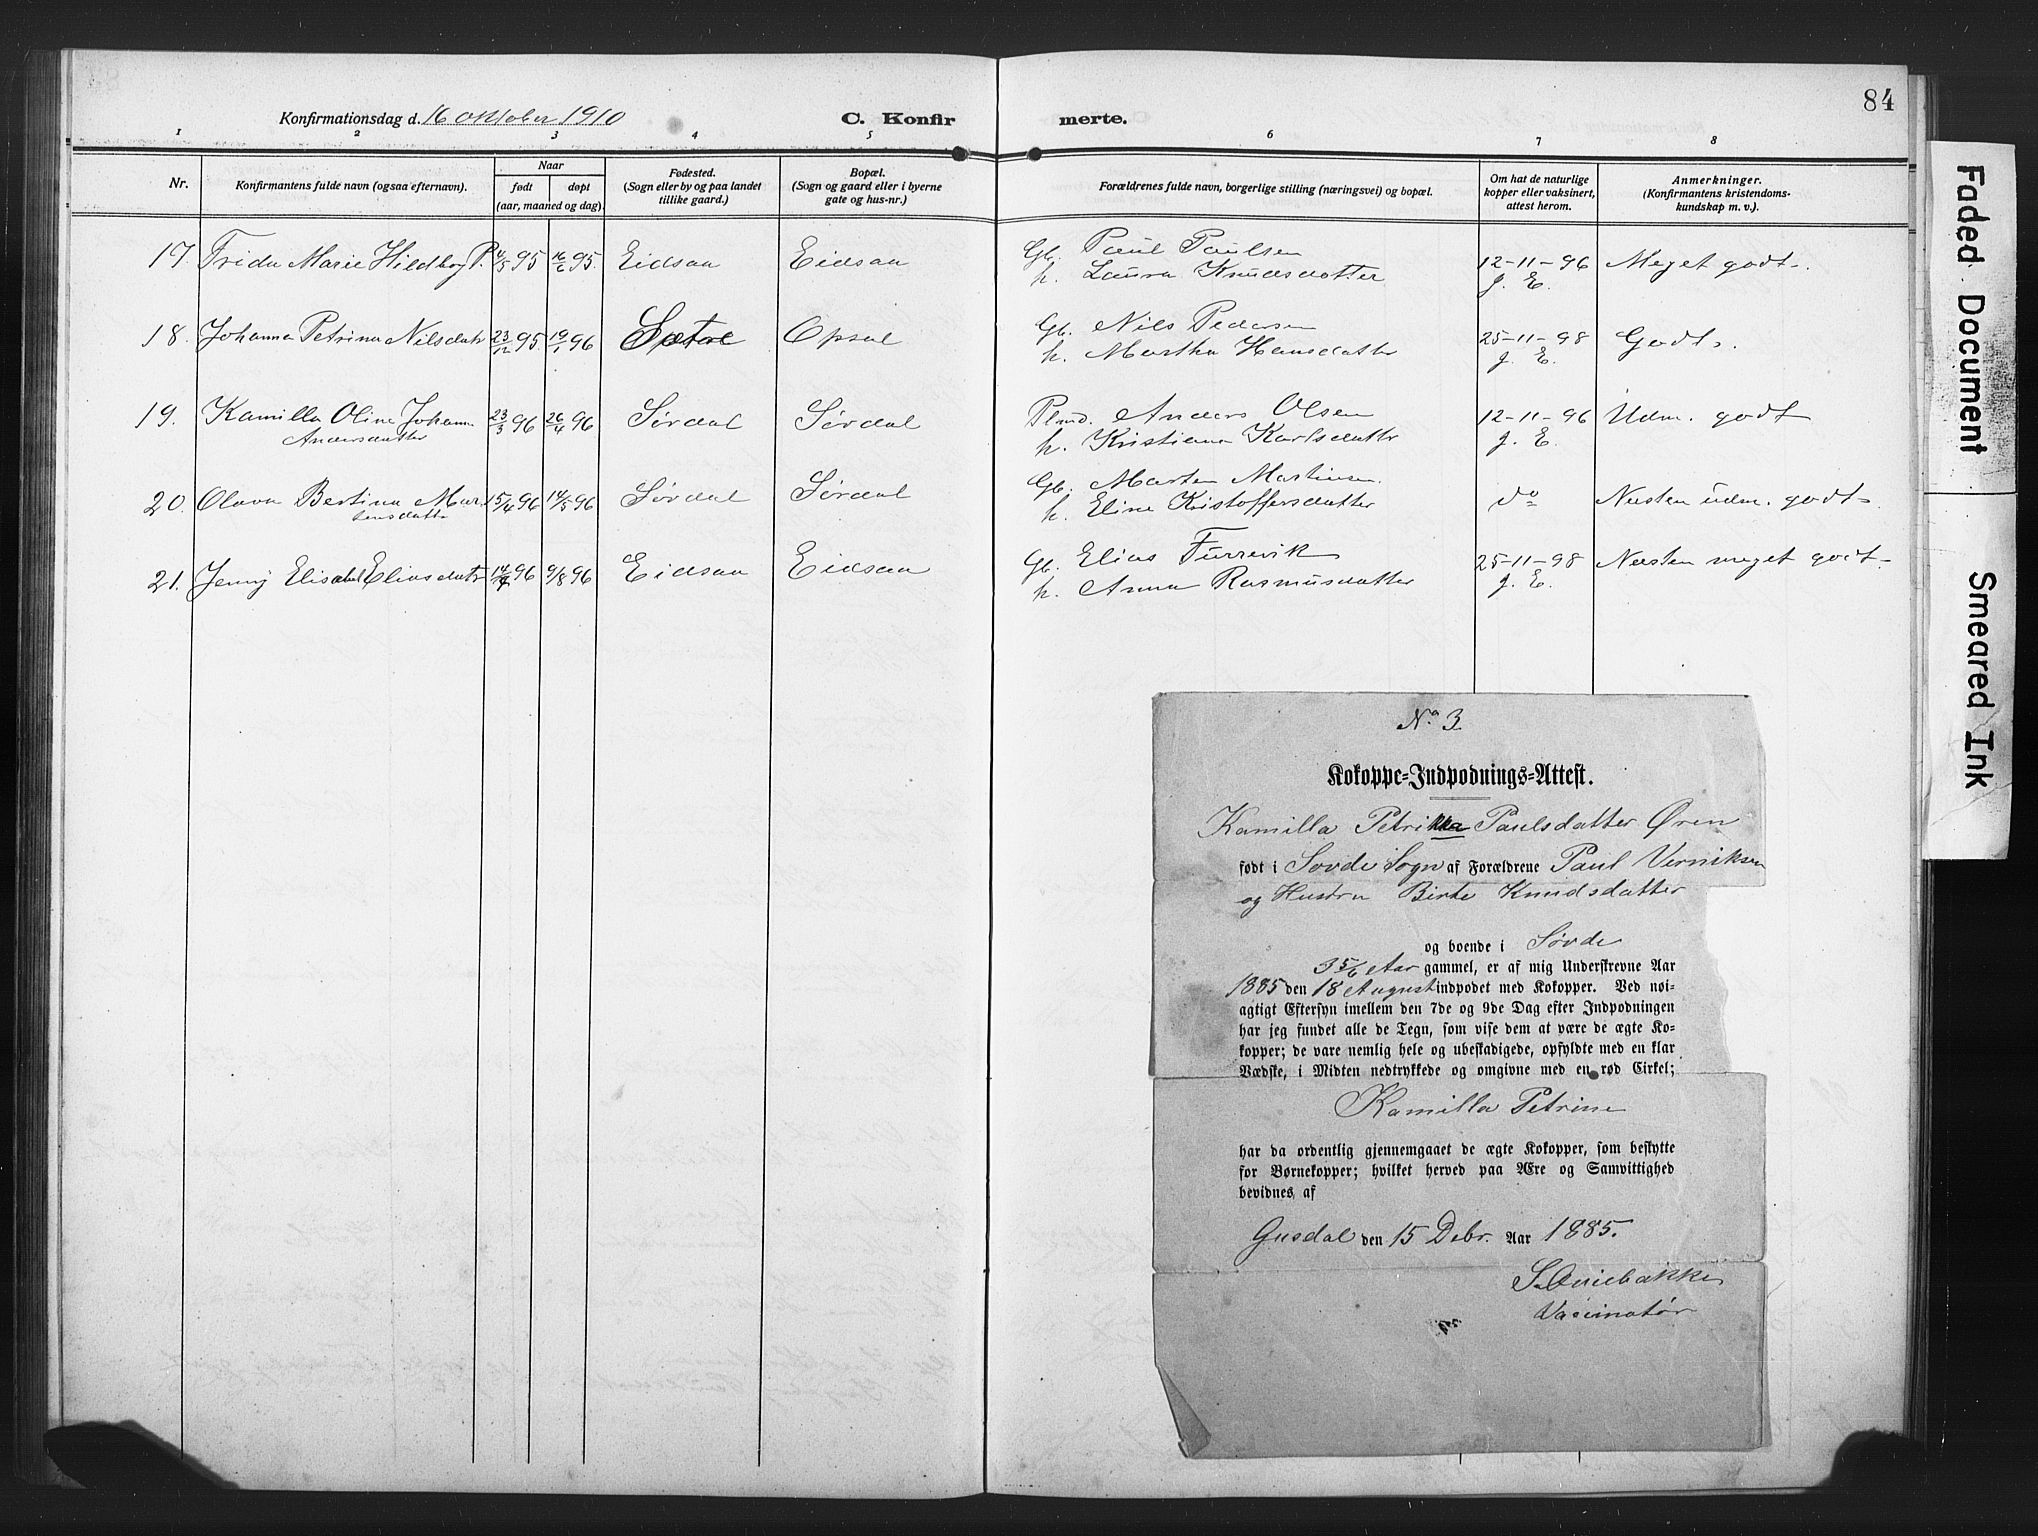 84
Konfirmationsdag d. 16 oktober 1910
C. Konfir merte.
1 2 3 4 5 6 7 8
Nr.
Konfirmantens fulde navn (ogsaa efternavn).
Naar
født døpt
(aar, maaned og dag).
Fødested.
(Sogn eller by og paa landet
tillike gaard.)
Bopæl.
(Sogn og gaard eller i byerne
gate og hus-nr.)
Forældrenes fulde navn, borgerlige stilling (næringsvei) og bopæl.
Om hat de naturlige
kopper eller vaksinert,
attest herom.
Anmerkninger.
(Konfirmantens kristendoms-
kundskap m. v.).
17. Frida Marie Hildborg P. 4/5 95 16/6 95. Eidsaa Eidsaa Gb. Paul Paulsen 12-11-96 Meget godt.
h. Laura Knudsdatter J. E.
18. Johanna Petrina Nilsdatr 23/12 95 19/1 96 Sætre Opsal Gb. Nils Pedersen 25-11-98 Godt.
h. Martha Hansdatter J. E.
19. Kamilla Oline Johanna 23/3 96 26/4 96 Sørdal Sørdal Plmd. Anders Olsen 12-11-96 Udm. godt
Andersdatter h. Kristiana Karlsdattr J. E.
20. Olava Bertina Mar 15/4 96 14/5 96 Sørdal Sørdal Gb. Marten Martinsen do Næsten udm. godt
tensdattr h. Eline Kristoffersdatter
21. Jenny Elisabet Eliasdatr 14/7 96 9/8 96 Eidsaa Eidsaa Gb. Elias Furrevik 25-11-98 Næsten meget godt.
h. Anna Rasmusdatter J. E.
No 3
Kokoppe-Indpodnings-Attest.
Kamilla Petrikka Paulsdatter Øren
født i Sovde Sogn af Forældrene Paul Verniksen
og Hustru Birte Knudsdatter
og boende i Søvde
3 5/6 Aar gammel, er af mig Underskrevne Aar
1885 den 18 August indpodet med Kokopper. Ved nøi-
agtigt Eftersyn imellem den 7de og 9de Dag efter Indpodningen
har jeg fundet alle de Tegn, som vise dem at være de ægte Ko-
kopper; de vare nemlig hele og ubeskadigede, opfyldte med en klar
Vædske, i Midten nedtrykkede og omgivne med en rød Cirkel;
Kamilla Petrine
har da ordentlig gjennemgaaet de ægte Kokopper, som beskytte
for Børnekopper; hvilket herved paa Ære og Samvittighed
bevidnes af
Gusdal den 15 Debr. Aar 1885.
Vaccinatør
Faded Document
Smeared Ink